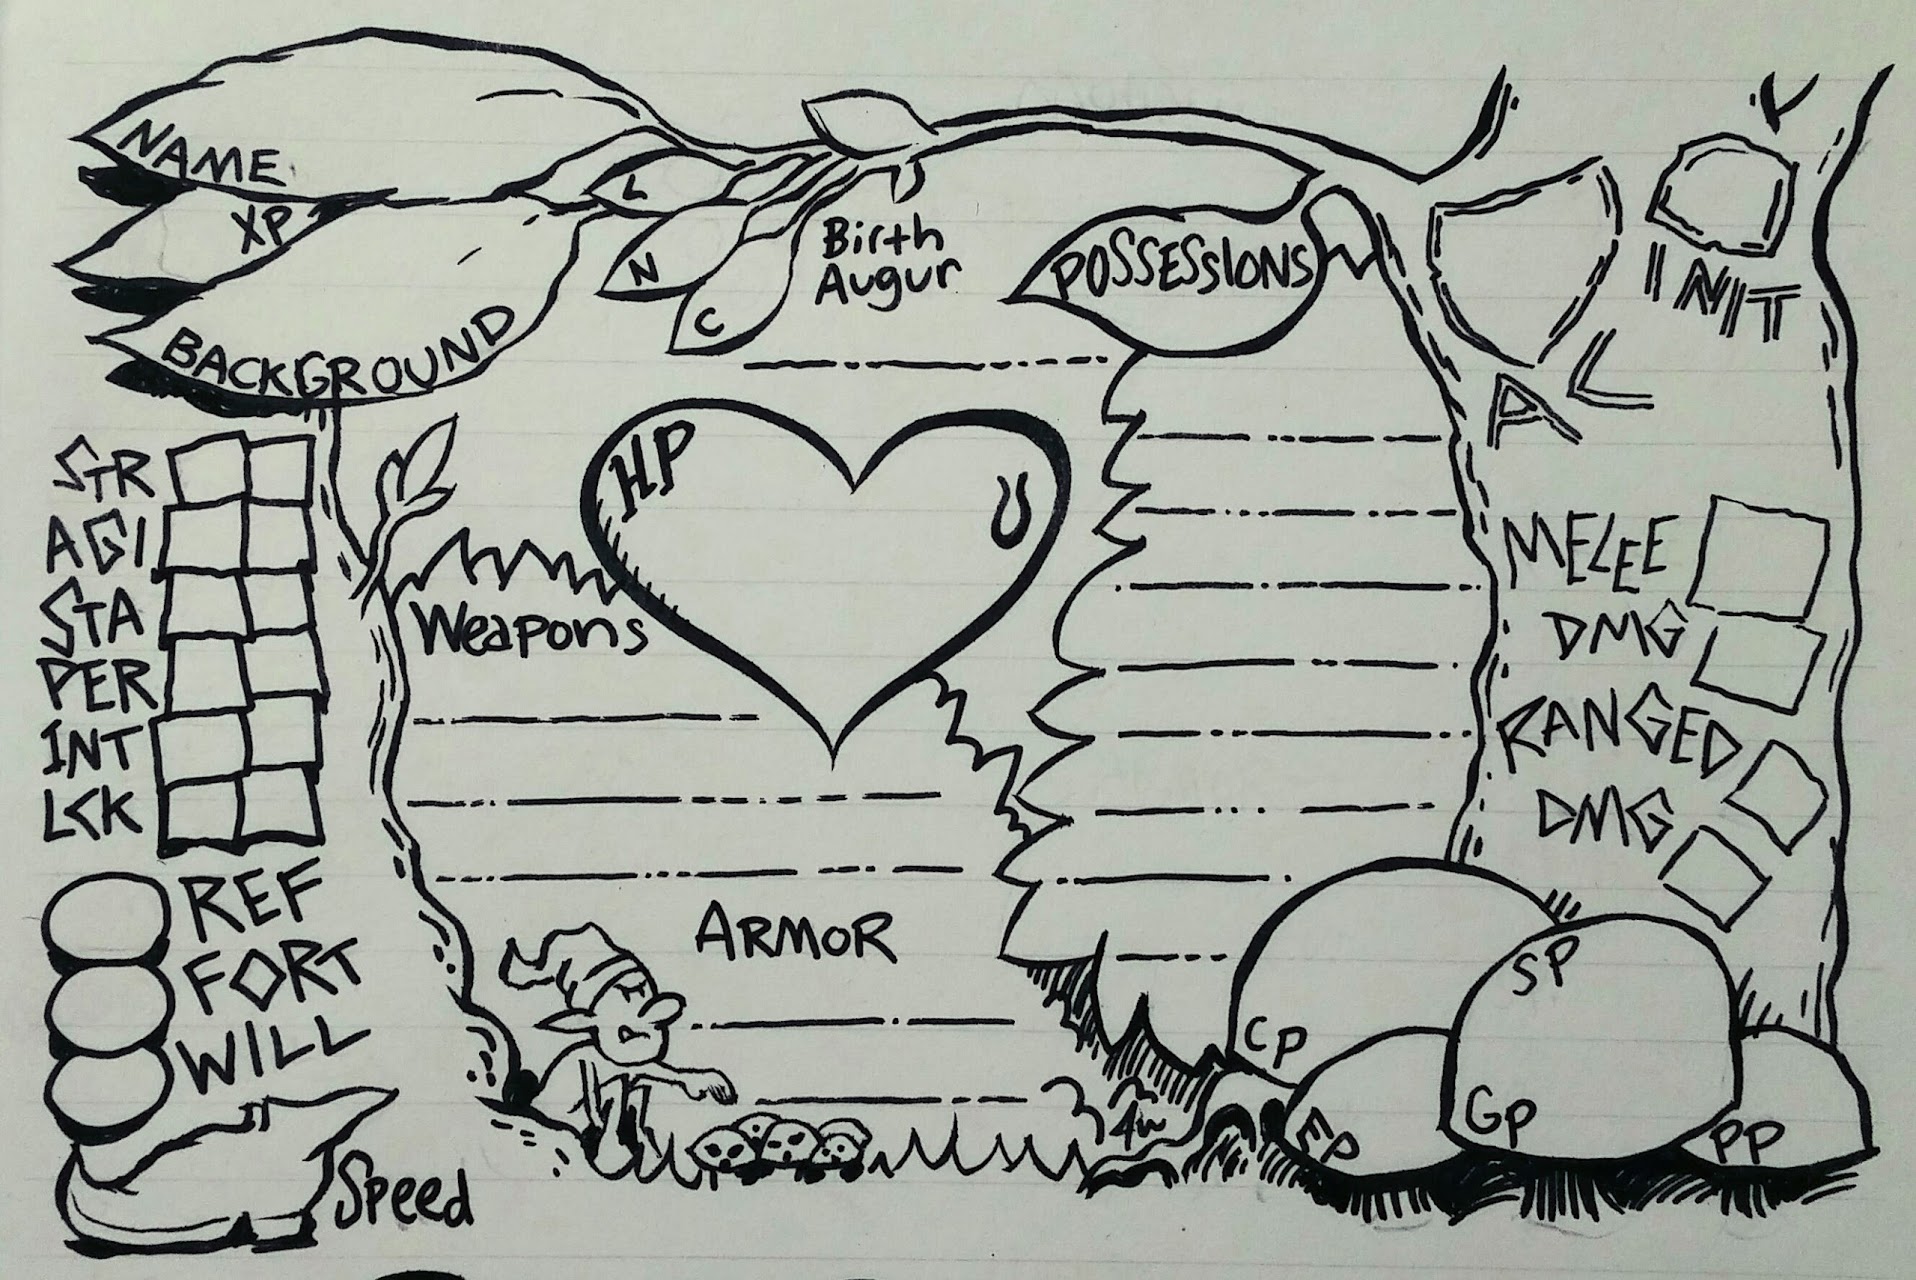 NAME
XP
BACKGROUND
L
N
C
Birth
Augur
POSSESSIONS
INIT
AC
STR
AGI
STA
PER
INT
LCK
REF
FORT
WILL
Speed
HP
Weapons
ARMOR
MELEE
DMG
RANGED
DMG
CP
SP
EP
GP
PP